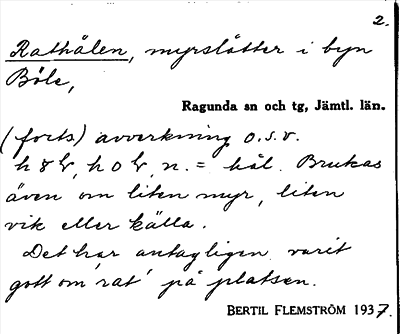 2.
Rathålen, myrslåtter i byn
Böle,
Ragunda sn och tg, Jämtl. län.
(forts) avverkning o.s.v.
n. = hål. Brukas
även om liten myr, liten
vik eller källa.
Det har antagligen varit
gott om 'rat' på platsen.
BERTIL FLEMSTRÖM 1937.